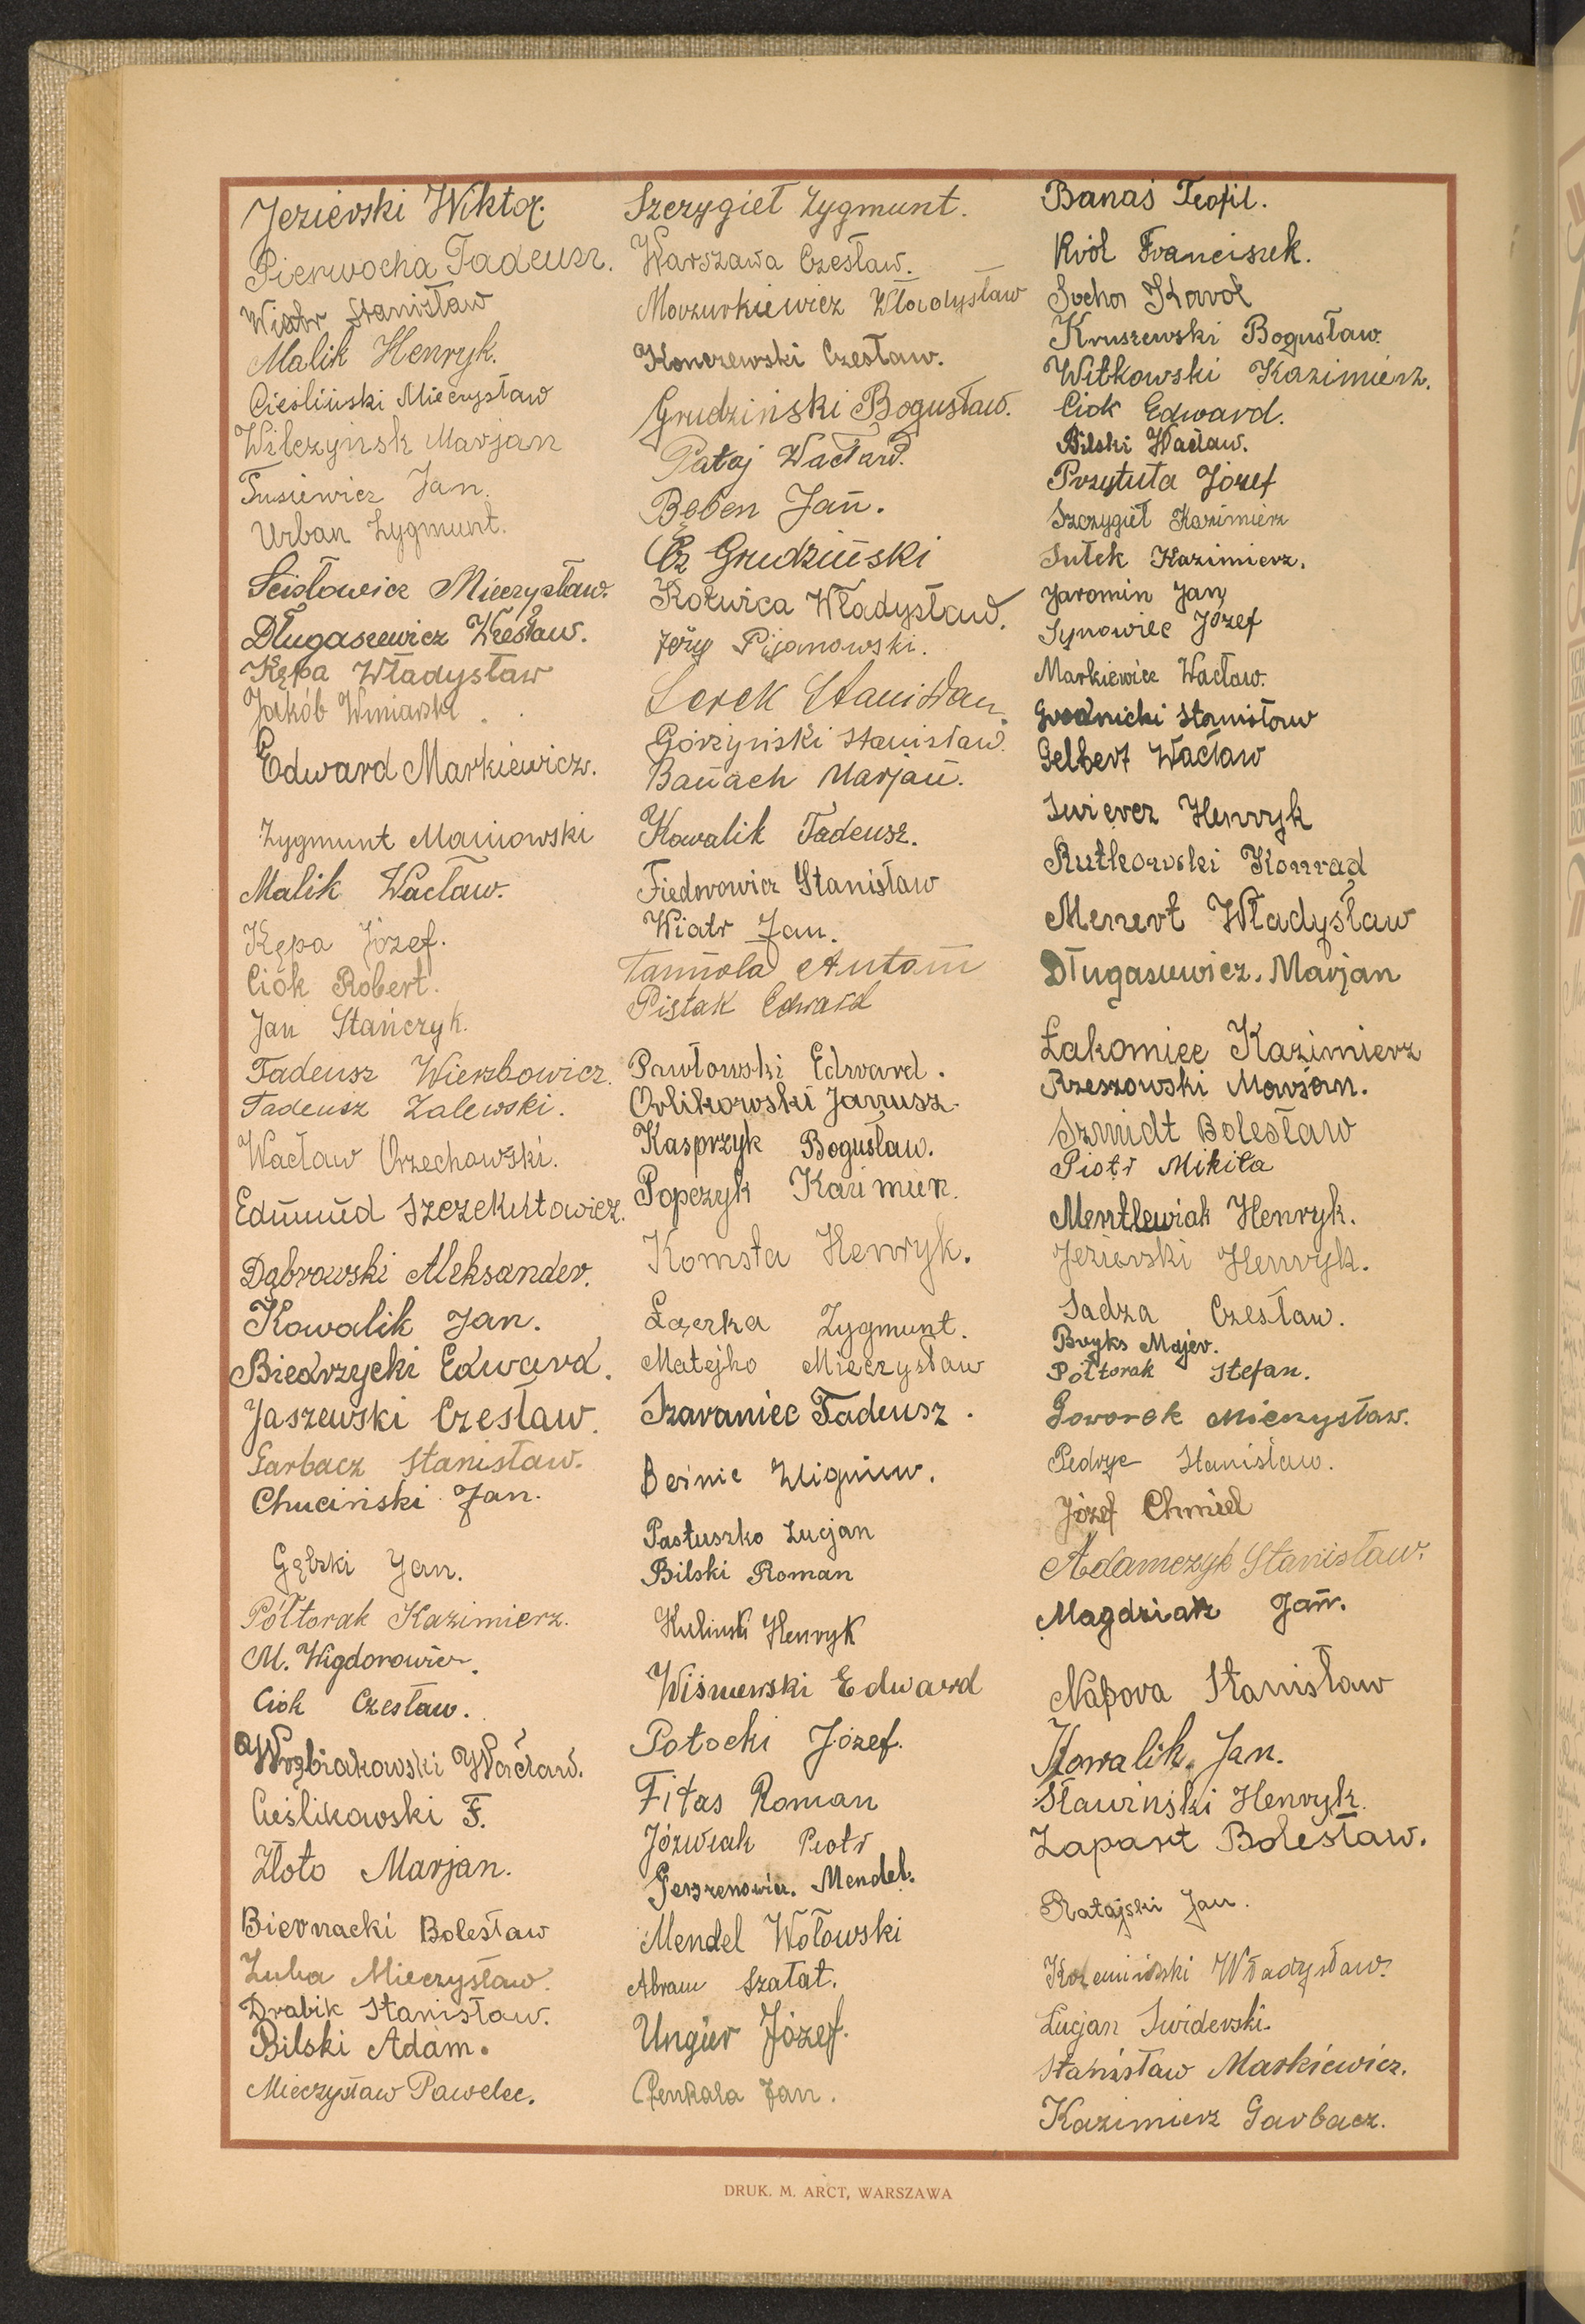 Jezierski Wiktor.
Pierwocha Tadeusz.
Wiatr Stanisław
Malik Henryk.
Cieśliński Mieczysław
Wilczyńsk Marjan
Tusiewicz Jan.
Urban Zygmunt.
Scisłowicz Mieczysław.
Długasiewicz Wiesław.
Kępa Władysław
Jakób Winiarski.
Edward Markiewicz.
Zygmunt Maniowski
Malik Wacław.
Kępa Józef.
Ciók Robert.
Jan Stańczyk.
Tadeusz Wierzbowicz.
Tadeusz Zalewski.
Wacław Orzechowski.
Edmund Szczekutowicz.
Dąbrowski Aleksander.
Kowalik Jan.
Biedrzycki Edward.
Jaszewski Czesław.
Garbacz Stanisław.
Chuciński Jan.
Gębski Jan.
Półtorak Kazimierz.
M. Wigdorowicz.
Ciok Czesław.
Wacław.
Cieślikowski F.
Złoto Marjan.
Biernacki Bolesław
Zuba Mieczysław.
Drabik Stanisław.
Bilski Adam.
Mieczysław Pawelec.
Szczygieł Zygmunt.
Warszawa Czesław.
Mazurkiewicz Władysław
Konczewski Czesław.
Grudziński Bogusław.
Pataj Wacław.
Beben Jan.
Cz Grudziński
Kotwica Władysław.
Jeży Pijanowski.
Serek Stanisław.
Górzyński Stanisław.
Banach Marjan.
Kowalik Tadeusz.
Fiedorowicz Stanisław
Wiatr Jan.
Antoni
Pistak Edward
Pawłowski Edward.
Orlikowski Janusz.
Kasprzyk Bogusław.
Popczyk Kazimierz.
Komsta Henryk.
Łączka Zygmunt.
Matejko Mieczysław
Szaraniec Tadeusz.
Beśnic Zbigniew.
Pastuszko Lucjan
Bilski Roman
Kulinski Henryk
Wiśniewski Edward
Potocki Józef.
Fitas Roman
Józwiak Piotr
Gerszenowicz. Mendel.
Mendel Wołowski
Abram Szałat.
Ungier Józef.
Penkala Jan.
Banaś Teofil.
Król Franciszek.
Socha Karol
Kruszewski Bogusław.
Witkowski Kazimierz.
Ciok Edward.
Bilski Wacław.
Przytuła Józef
Szczygieł Kazimierz
Sułek Kazimierz.
Jaromin Jan
Synowiec Józef
Markiewicz Wacław.
Grodnicki Stanisław
Gelbert Wacław
Swiercz Henryk
Rutkowski Konrad
Menert Władysław
Długasiewicz. Marjan
Łakomiec Kazimierz
Rzeszowski Marjan.
Szmidt Bolesław
Piotr Mikita
Mentlewiak Henryk.
Jezierski Henryk.
Sadza Czesław.
Bryks Majer.
Połtorak Stefan.
Goworek Mieczysław.
Pedryc Stanisław.
Józef Chmiel
Adamczyk Stanisław.
Magdziak Jan.
Napora Stanisław
Kowalik. Jan.
Sławiński Henryk.
Zapart Bolesław.
Ratajski Jan.
Władysław.
Lucjan Swiderski.
Stanisław Markiewicz.
Kazimierz Garbacz.
DRUK. M. ARCT, WARSZAWA